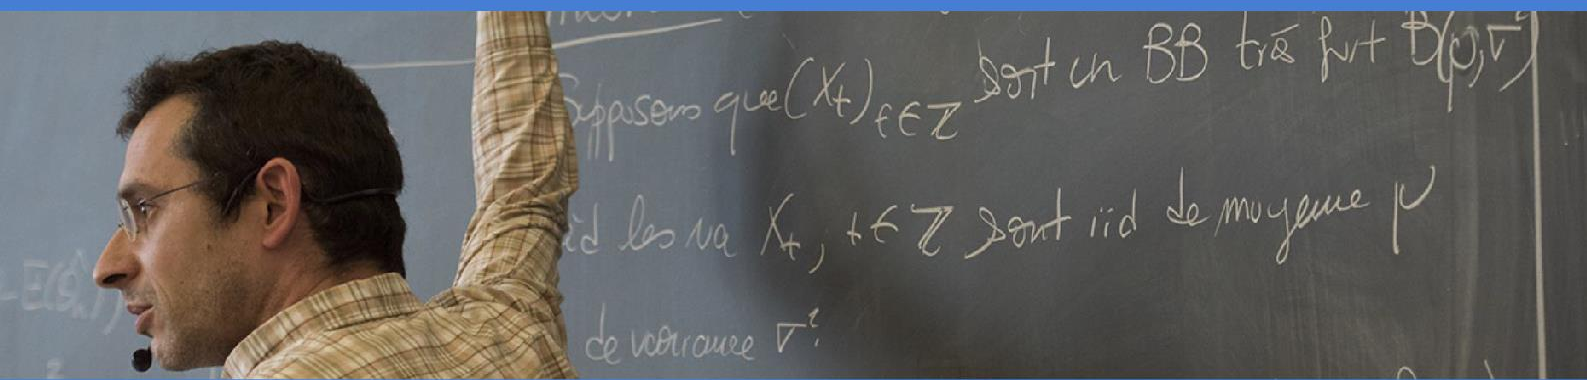 Supposons que (X_t)_{t∈Z} sont un BB très fort B(μ,σ²)
id les va X_t, t∈Z sont iid de moyenne μ
de variance σ².